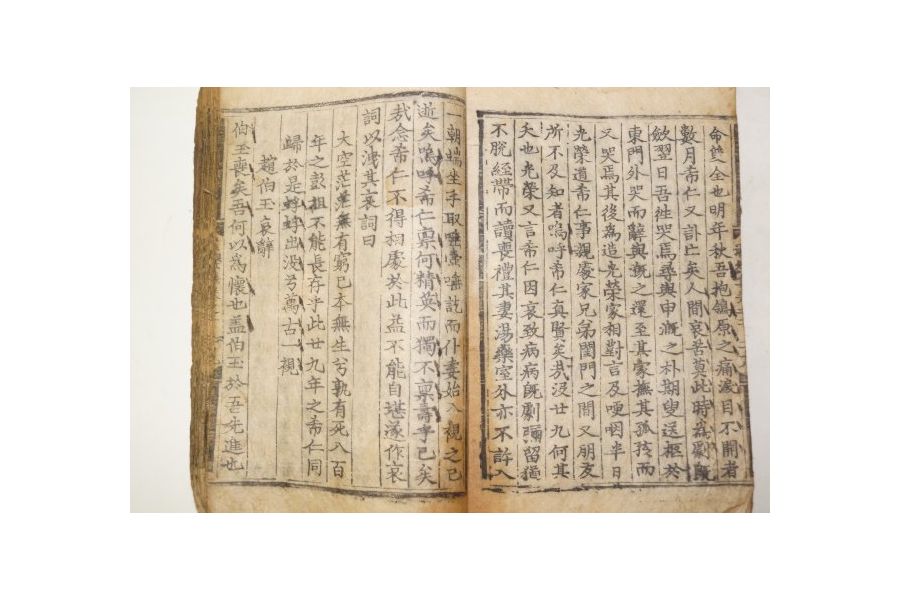 命雙全也明年秋吾抱鴒原之痛淚目不開者
數月希仁又訃亡矣人間哀苦莫此時為劇既
斂翌日吾往哭焉尋與申漑之朴期叟送柩於
東門外哭而辭與漑之還至其家撫其孤孩而
又哭焉其後為造光榮家相對言及哽咽半日
光榮道希仁事親處家兄弟閨門之間又朋友
所不及知者嗚呼希仁真賢矣哉沒廿九何其
夭也光榮又言希仁因哀致病病旣劇彌留猶
不脫絰帶而讀喪禮其妻湯藥室外亦不許入
一朝端坐手取嚥而什妻始入視之已
逝矣嗚呼希仁禀何精英而獨不禀壽乎已矣
哉念希仁不得相處於此益不能自堪遂作哀
詞以洩其哀詞曰
大空茫茫無有窮已本無生兮孰有死八百
年之彭祖不能長存乎此廿九年之希仁同
歸於是蜉蜉出沒兮萬古一視
趙伯玉哀辭
伯玉喪矣吾何以為懷也盖伯玉於吾先進也